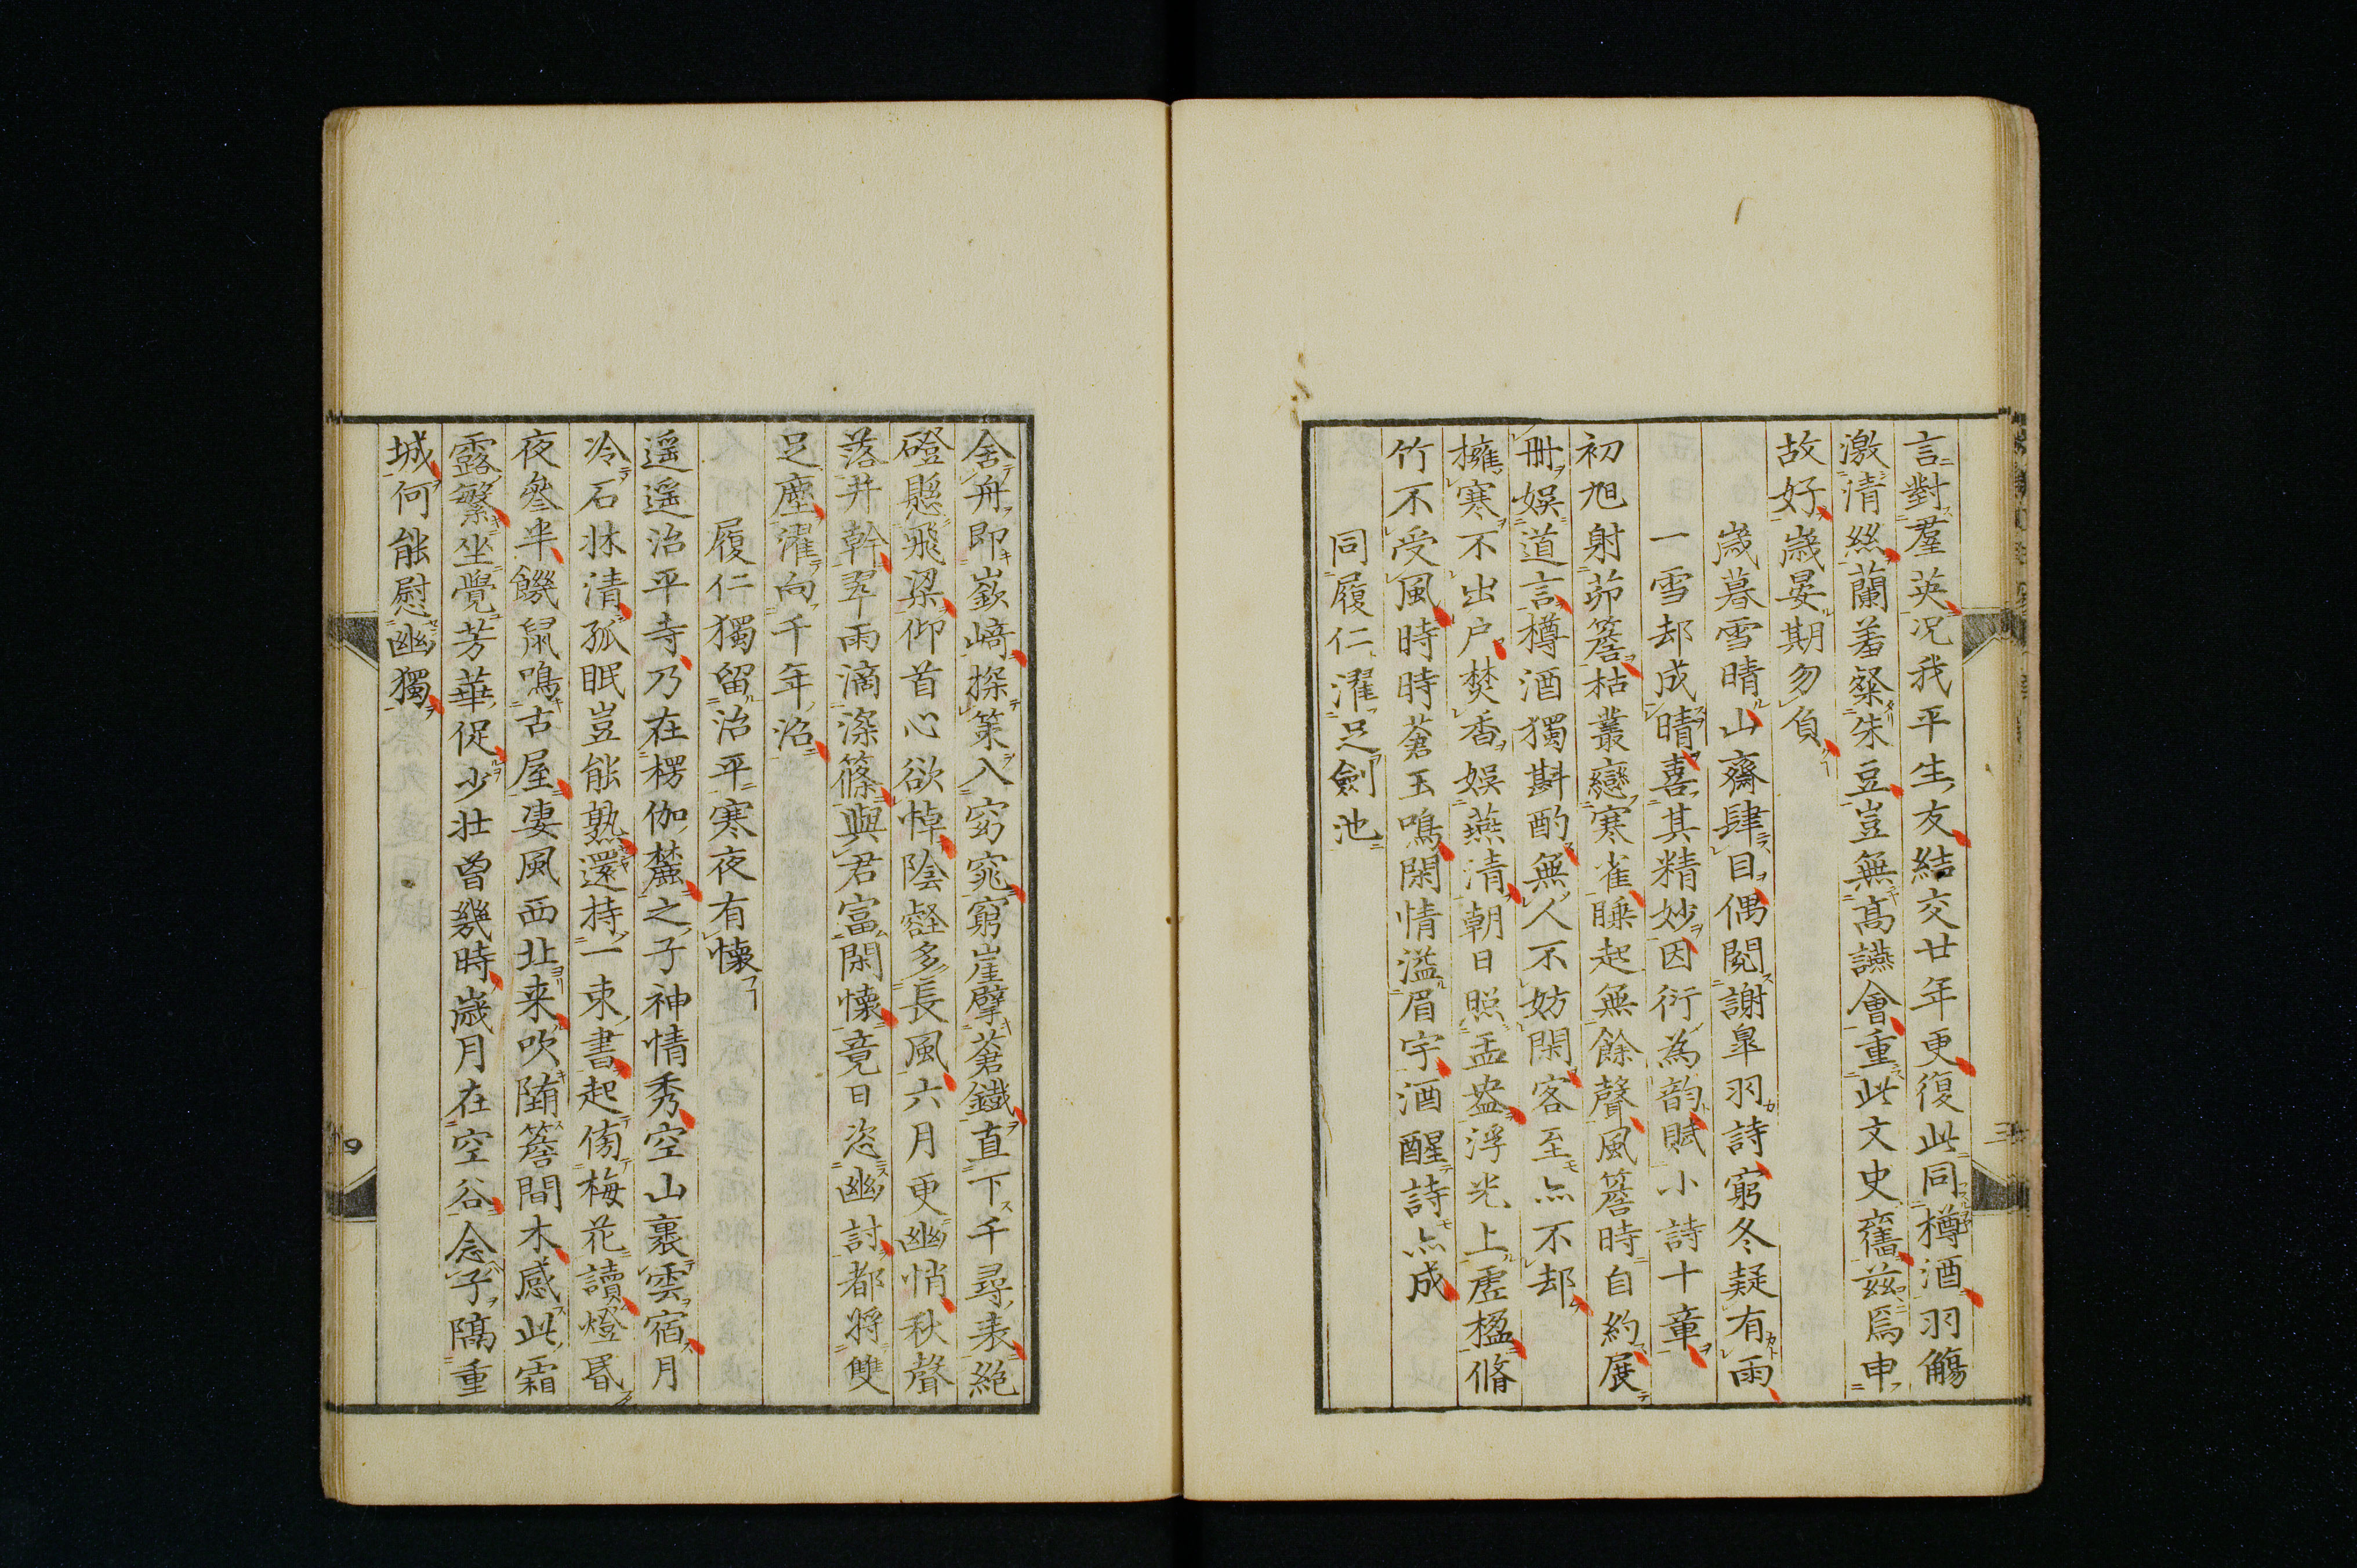 言對羣英况我平生友結交廿年更復此同樽酒羽觴
激清絲蘭羞粲朱豆豈無髙讌會重此文史舊兹焉申
故好歲晏期勿負
歲暮雪晴山齋肆目偶閱謝臯羽詩窮冬疑有雨
一雪却成晴喜其精妙因衍為韵賦小詩十章
初旭射茆簷枯叢戀寒雀睡起無餘聲風簷時自約展
冊娱道言樽酒獨斟酌無人不妨閑客至亦不却
擁寒不出户焚香娱燕清朝日照盂盎浮光上虛楹脩
竹不受風時時蒼玉鳴閑情溢眉宇酒醒詩亦成
同履仁濯足劍池
舍舟即嶔﨑探策入窈窕窮崖擘蒼鐵直下千尋表絶
磴懸飛梁仰首心欲悼陰壑多長風六月更幽悄秋聲
落井幹翠雨滴滌篠與君富閑懷竟日恣幽討都將雙
足塵濯向千年沼
履仁獨留治平寒夜有懷
遥遥治平寺乃在楞伽麓之子神情秀空山裏雲宿月
冷石牀清孤眠豈能熟還持一束書起傍梅花讀燈昬
夜參半饑鼠鳴古屋凄風西北来吹墮簷間木感此霜
露繁坐覺芳華促少壮曾幾時歲月在空谷念子隔重
城何能慰幽獨